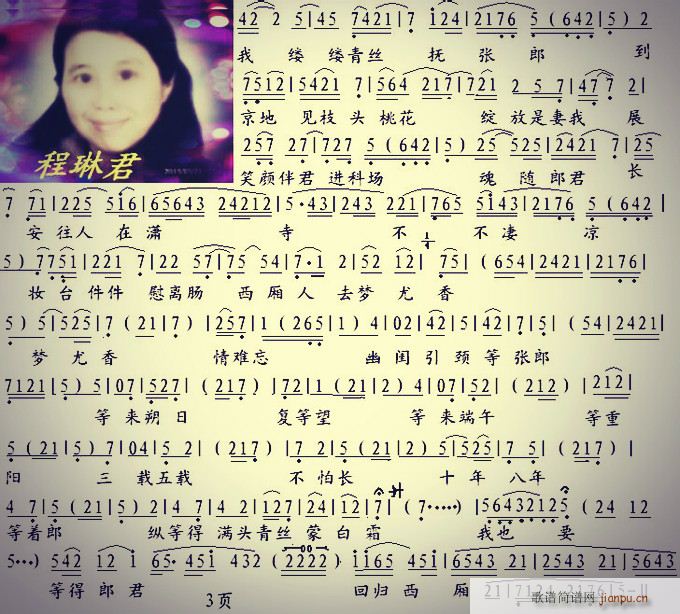 42 2 5|45 7421|7 124|2176 5(642|5) 2
我 缕 缕青丝 抚张郎 到
7512|5421 7|564 217|721 2 5 7|47 7 2|
京地 见枝头桃花 绽 放是妻我 展
257 27|727 5(642|5) 25 525 2421 7|25
笑颜伴君 进科场 魂 随郎君 长
7 71|225 516|65643 24212|5·43 243 221|765 5143|2176 5(642|
安 往人 在潇 寺 不 不凄 凉
5)7751|221 7|2142 575|75 54|7·1 2|52 12| 75|(654|2421|2176|
妆台件件 慰离肠 西厢人 去梦尤香
5)5|525|7(21|7)|257|1(265|1 4)|02|42|5 42|7 5|(54|2421|
梦尤香 情难忘 幽闺引颈等张郎
7121|5)5|07|527|(217)|72|1(21|2)4|07|52|(212)|212|
等来朔日 复等望 等来端午 等重
5(21|5)7|04|5 2|(217)|7 2|5(21|5)2|525|7 5|(217)|
阳 三载五载 不怕长 十年八年
4 7|5(21|5)2|4 7|4 212|7 127|24 12|7 (7·····)|56432125 (24 12
等着郎 纵等得 满头青丝蒙白霜 我也 要
5···)542 12 1|65·451 432(2222)|1165 451|65643 21|2543 21|5643
等得郎君 回归西厢
3页
程琳君
歌谱简谱网
jianpu.cn